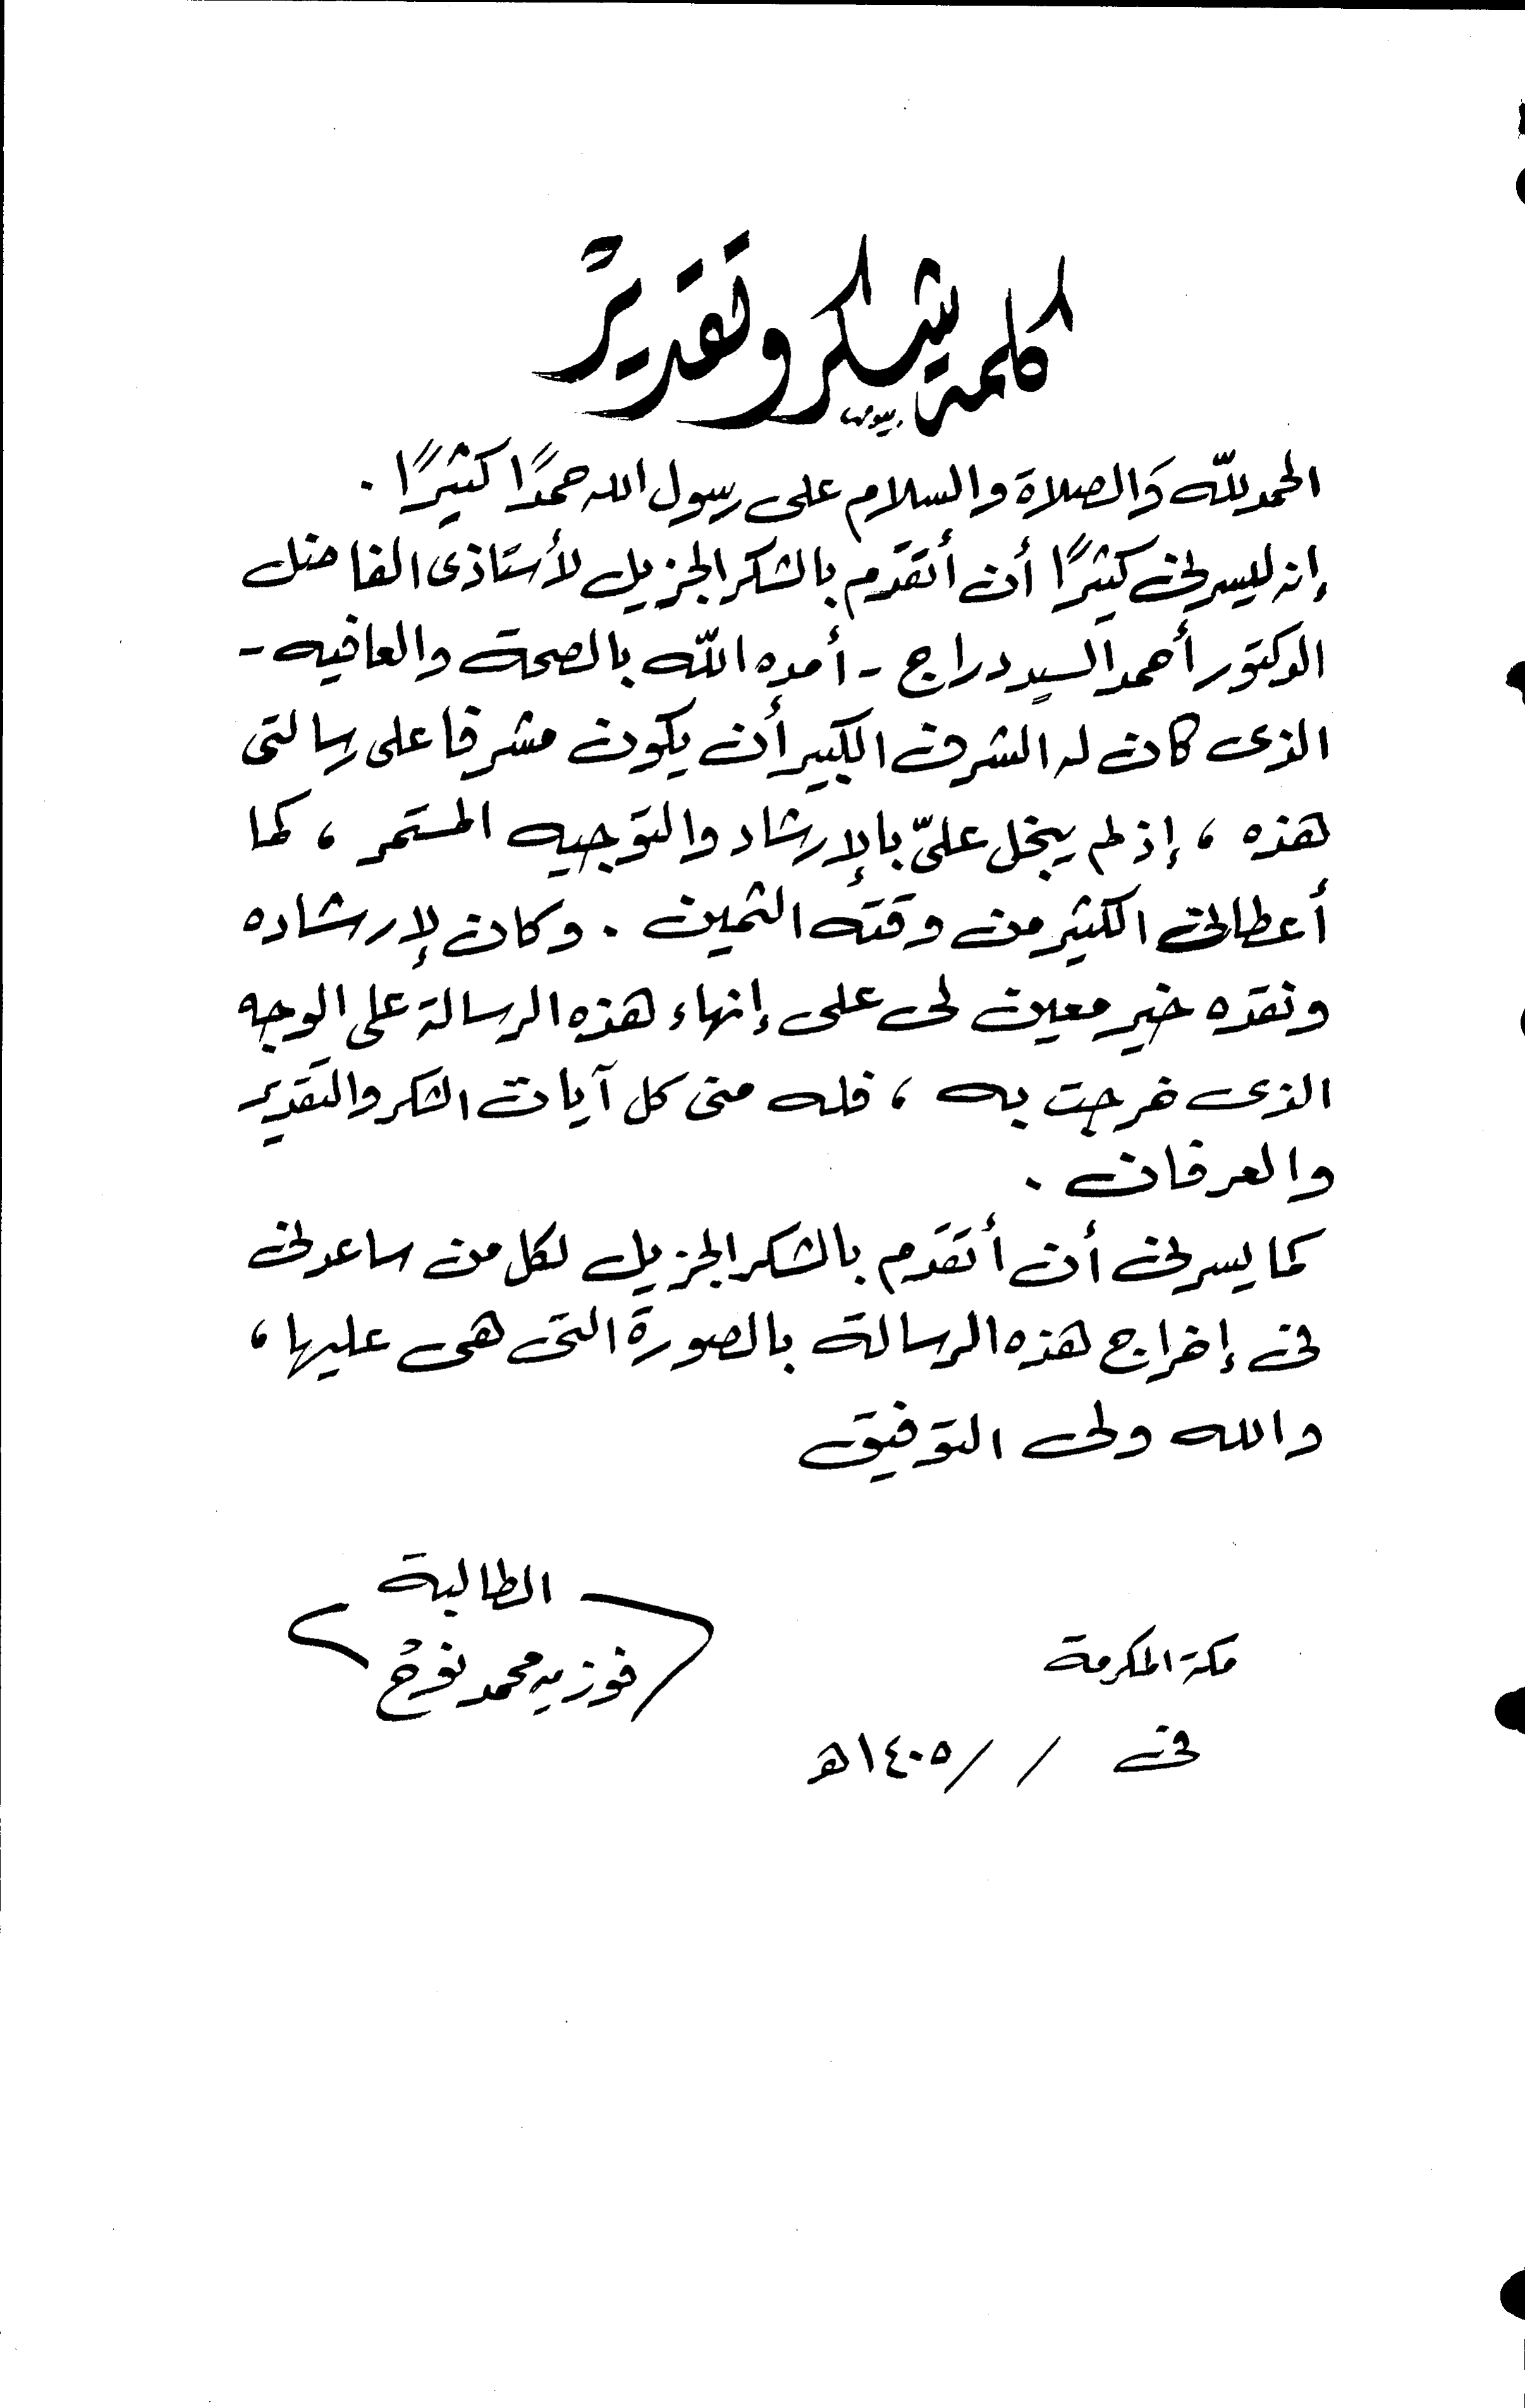 كلمة شكر وتقدير
الحمد للّه وَالصلاة والسلام على رسول الله حمدًا كثيرًا .
إنه ليسرنى كثيرًا أن أتقدم بالشكر الجزيل لأستاذى الفاضل
الدكتور أحمد السيد دراج - أمده اللّه بالصحة والعافيه -
الذى كان له الشرف الكبير أن يكون مشرفا على رسالتى
هذه ، إذ لم يبخل علىّ بالإرشاد والتوجيه المستمر ، كما
أعطانى الكثير من وقته الثمين . وكان لإرشاده
ونقده خير معين لى على إنهاء هذه الرسالة على الوجه
الذى خرجت به ، فله منى كل آيات الشكر والتقدير
والعرفان .
كما يسرنى أن أتقدم بالشكر الجزيل لكل من ساعدنى
فى إخراج هذه الرسالة بالصورة التى هى عليها ،
والله ولى التوفيق
الطالبة
فوزيه محمد نوح
مكة المكرمة
فى / / ١٤٠٥هـ